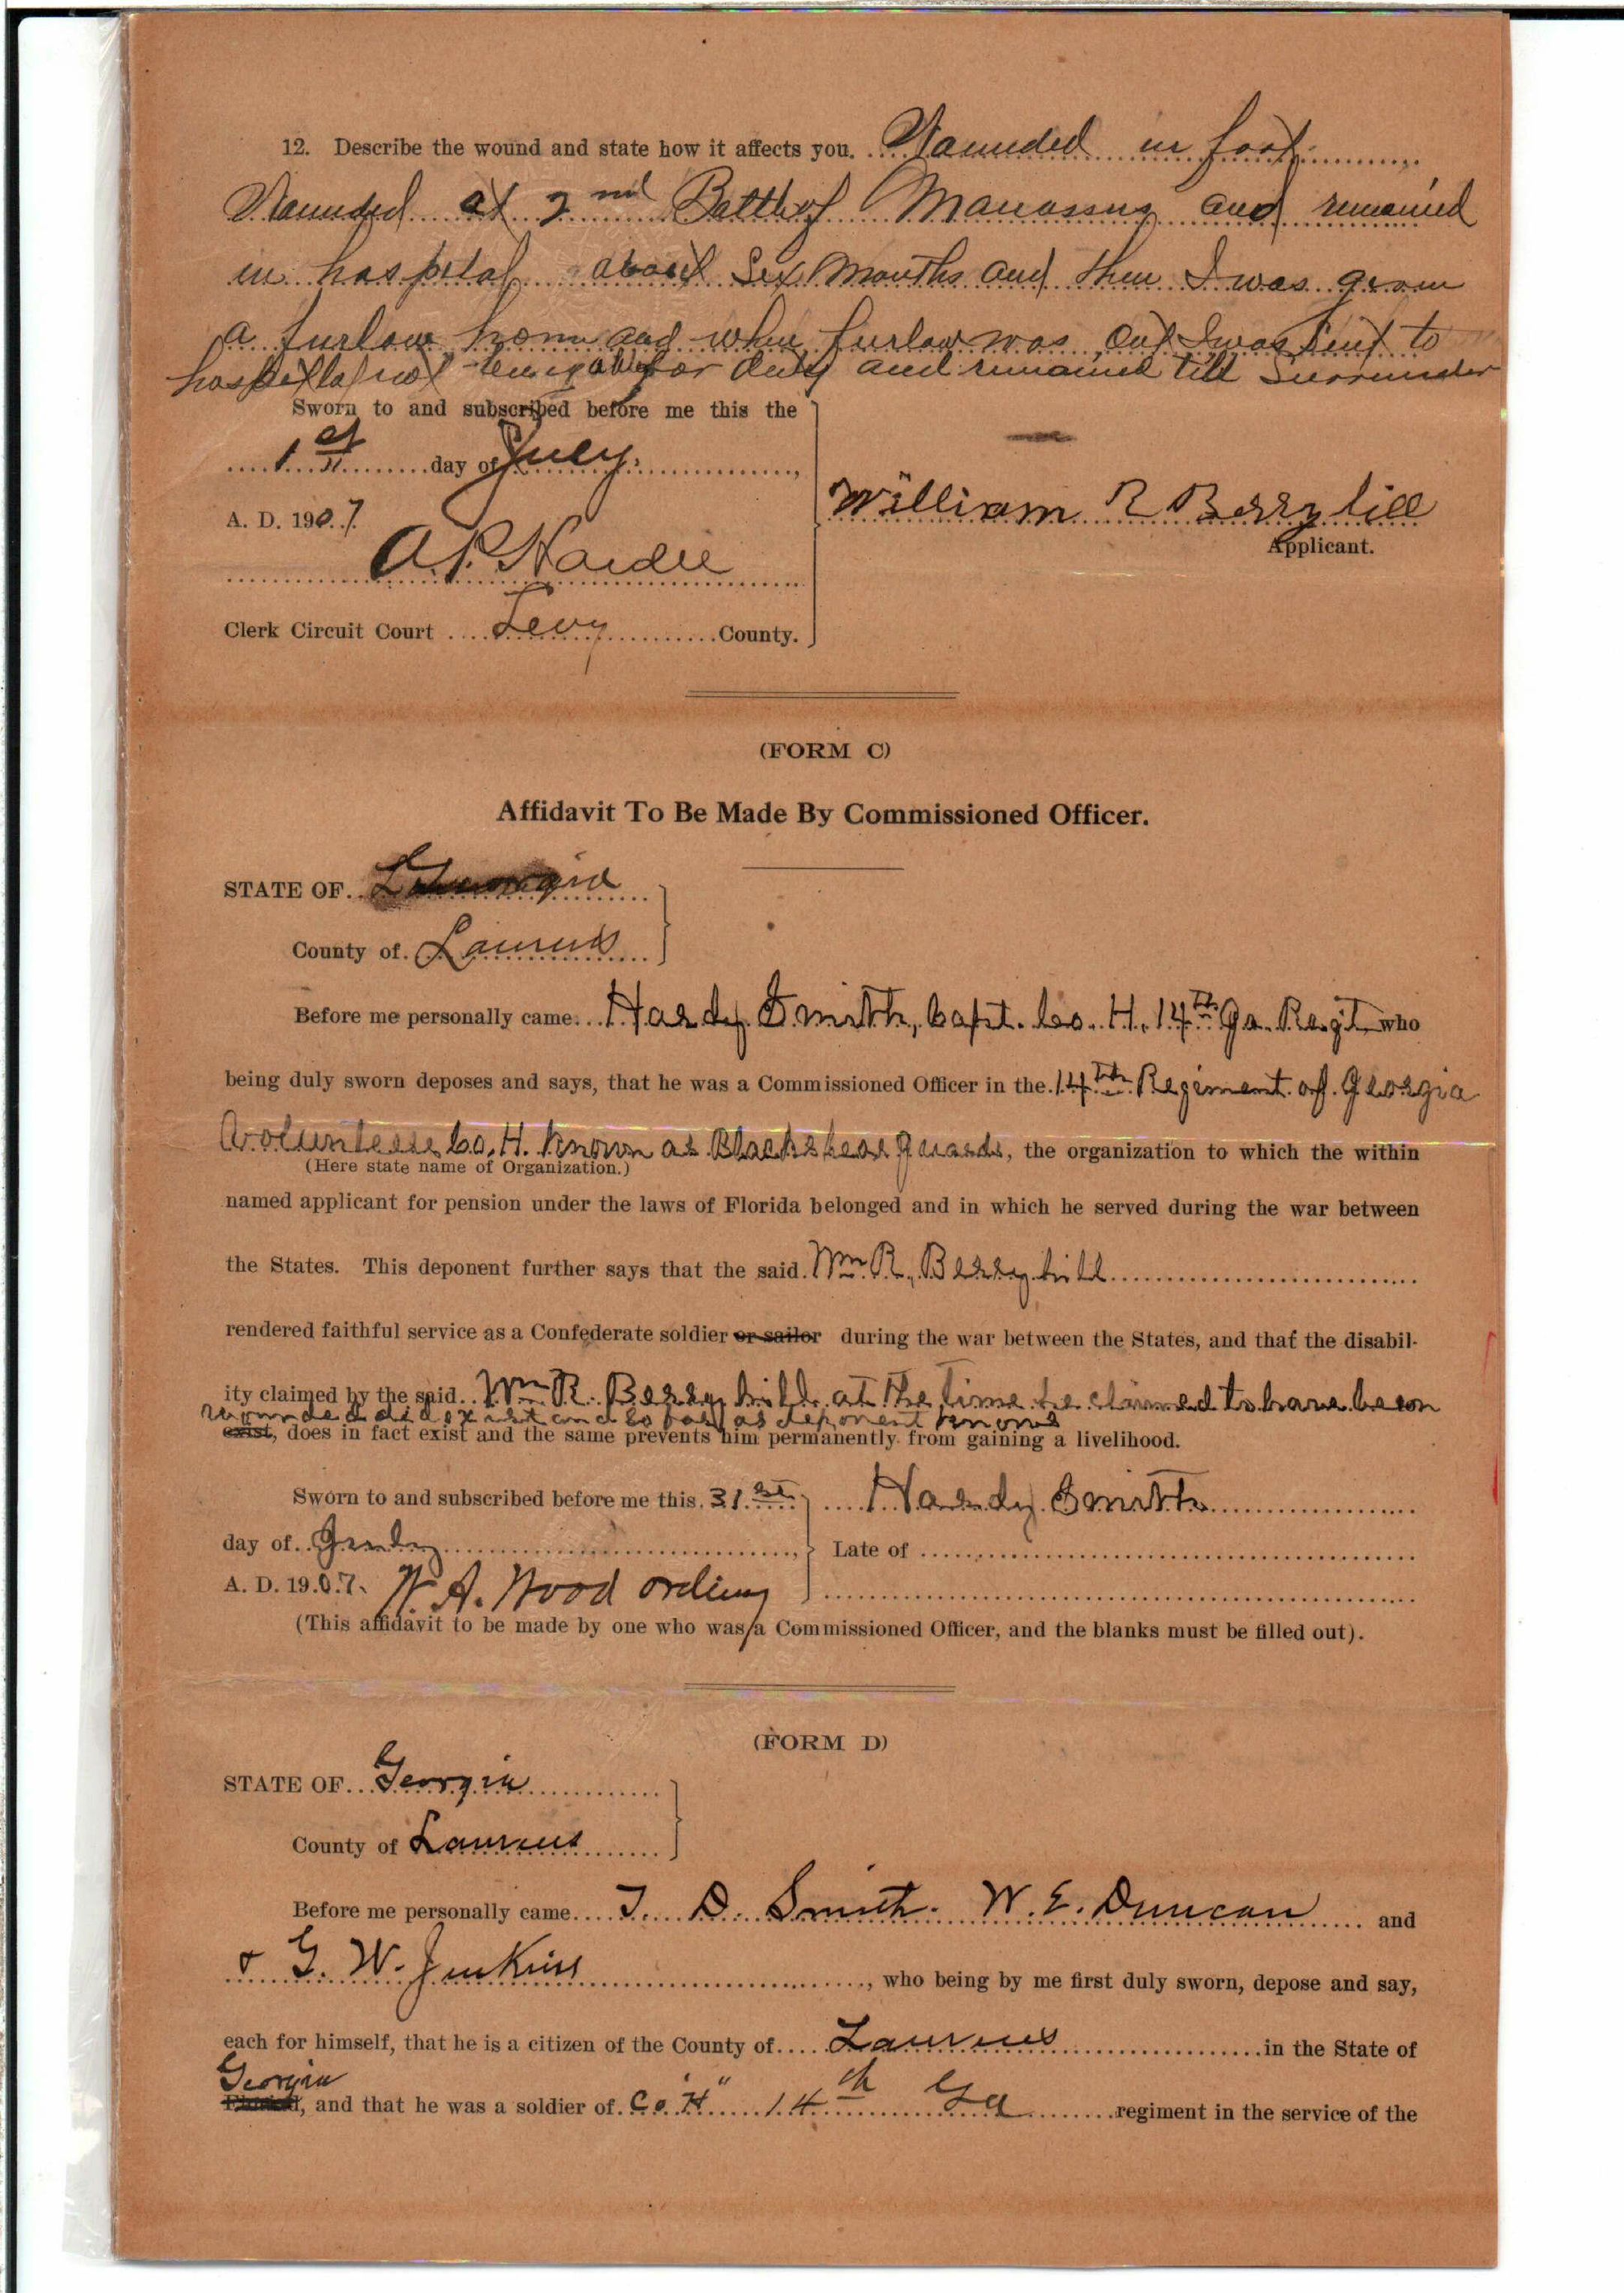 12. Describe the wound and state how it affects you. Wounded in foot
Wounded at 2nd Battle of Manassus and remained
in hospital about Six Months and then I was given
a furlow home and when furlow was out I was sent to
hospittal not being able for duty and remained till Surrender
Sworn to and subscribed before me this the
1st day of July,
A. D. 1907
William R Berryhill
Applicant.
A. P. Hardee
Clerk Circuit Court Levy County.
(FORM C)
Affidavit To Be Made By Commissioned Officer.
STATE OF Georgia
County of Laurens
Before me personally came Hardy Smith, Capt. Co. H, 14th Ga. Reg't who
being duly sworn deposes and says, that he was a Commissioned Officer in the 14th Regiment of Georgia
Volunteers Co. H. known as Blackshear Guards, the organization to which the within
(Here state name of Organization.)
named applicant for pension under the laws of Florida belonged and in which he served during the war between
the States. This deponent further says that the said Wm R. Berryhill
rendered faithful service as a Confederate soldier or sailor during the war between the States, and that the disabil-
ity claimed by the said Wm R. Berryhill at the time he claimed to have been
wounded did exist and so far as deponent knows
exist, does in fact exist and the same prevents him permanently from gaining a livelihood.
Sworn to and subscribed before me this 31st Hardy Smith
day of July Late of
A. D. 1907. W. A. Wood ordinary
(This affidavit to be made by one who was a Commissioned Officer, and the blanks must be filled out).
(FORM D)
STATE OF Georgia
County of Laurens
Before me personally came T. D. Smith. W. E. Duncan and
& G. W. Jenkins, who being by me first duly sworn, depose and say,
each for himself, that he is a citizen of the County of Laurens in the State of
Georgia
Florida, and that he was a soldier of Co "H" 14th Ga regiment in the service of the